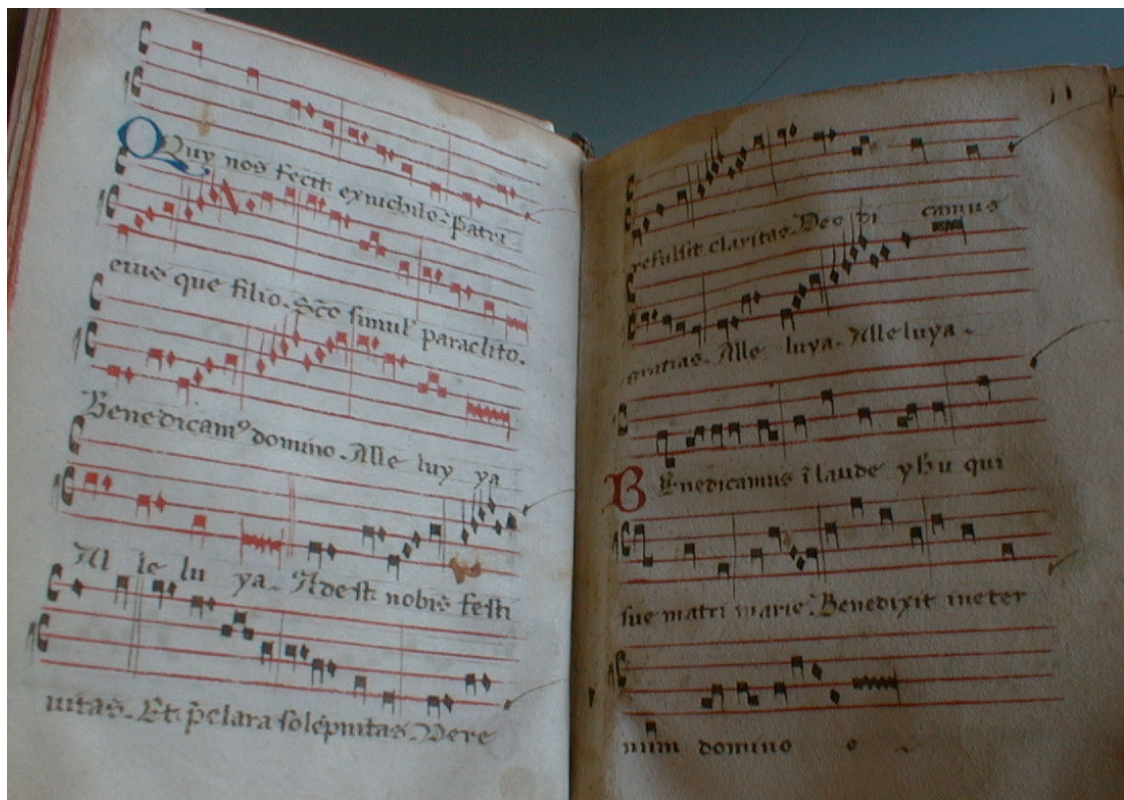 Quy nos fecit exnichilo. Patri
eius que filio. Sc̄o simul paraclito.
Benedicamꝰ domino. Alle luy ya
Al le lu ya. Adest nobis festi
uitas. Et p̄clara solēpnitas. Vere
refulsit claritas. Deo di camus
gratias. Alle luya. Alleluya.
Benedicamus ī laude yhu qui
sue matri marie. Benedixit ineter
num domino